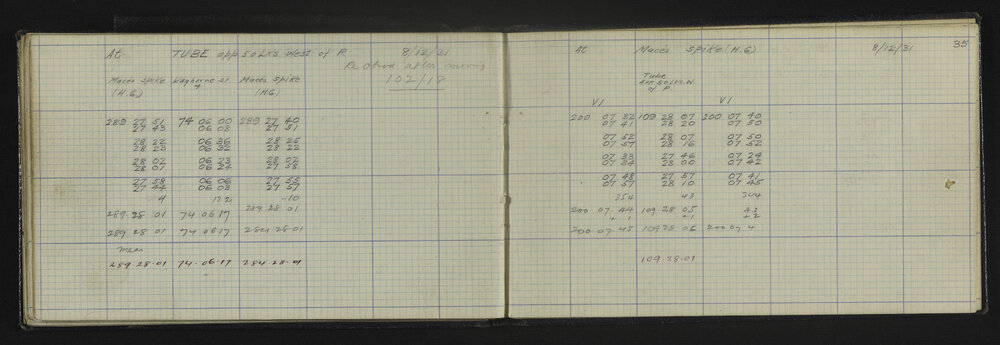 At TUBE app 50 LKS West of P. 8/12/31
Re Obsvd after
102/18
Mace's Spike Waghorne St Mace's Spike
(H.G) 4 (H.G)
289 27 51 74 06 00 289 27 40
27 43 06 08 27 51
28 22 06 36 28 25
28 23 06 32 28 22
28 02 06 23 28 02
28 01 06 24 27 58
27 58 06 06 27 53
27 44 06 03 27 57
4 132 -10
289 28 01
289.28 01 74 06 17
289.28 01 74 06 17 28.01
mean
289.28.01 74.06.17
At Mace's Spike (H.G) 8/12/31 35
Tube
App 50 LKS. W.
of P.
VI VI
200 07 32 109 28 07 200 07 40
07 41 28 20 07 50
07 52 28 07 07 50
07 57 28 16 07 52
07 33 27 46 07 24
07 34 28 00 07 42
07 48 27 57 07 41
07 57 28 10 07 45
354 43 344
200.07.44 109.28 05 43
+ 1 +1 + 2
200 07.45 109 28.06 200 07 4
109.28.01